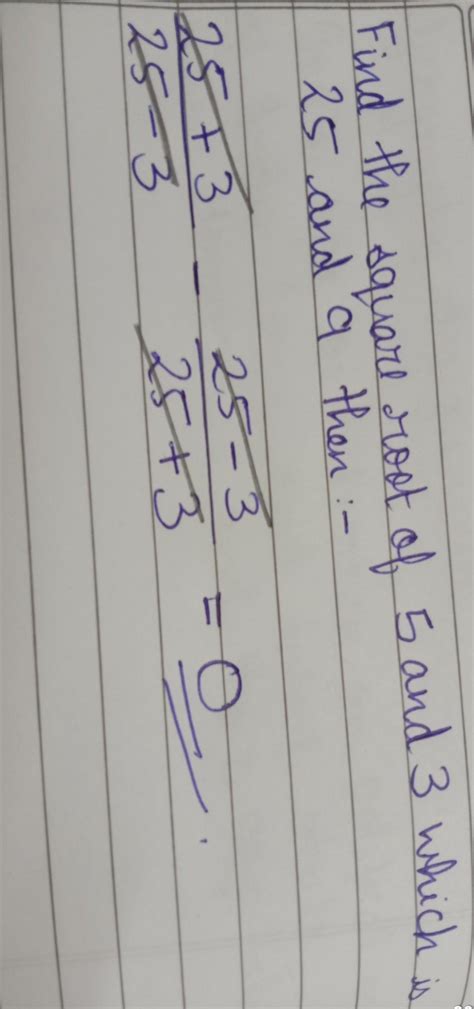 Find the square root of 5 and 3 which is
25 and 9 then :-
25 + 3 - 25 - 3 = 0
25 - 3 25 + 3